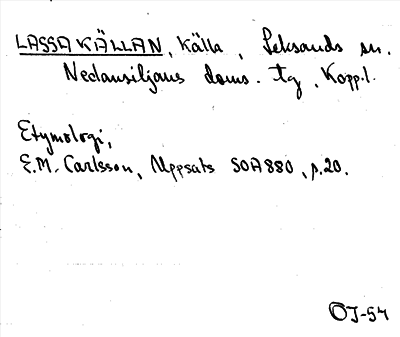 LASSAKÄLLAN, Källa, Leksands sn.
Nedansiljans doms. tg, Kopp.l.
Etymologi,
E.M. Carlsson, Uppsats SOA 880, p.20.
OJ-54